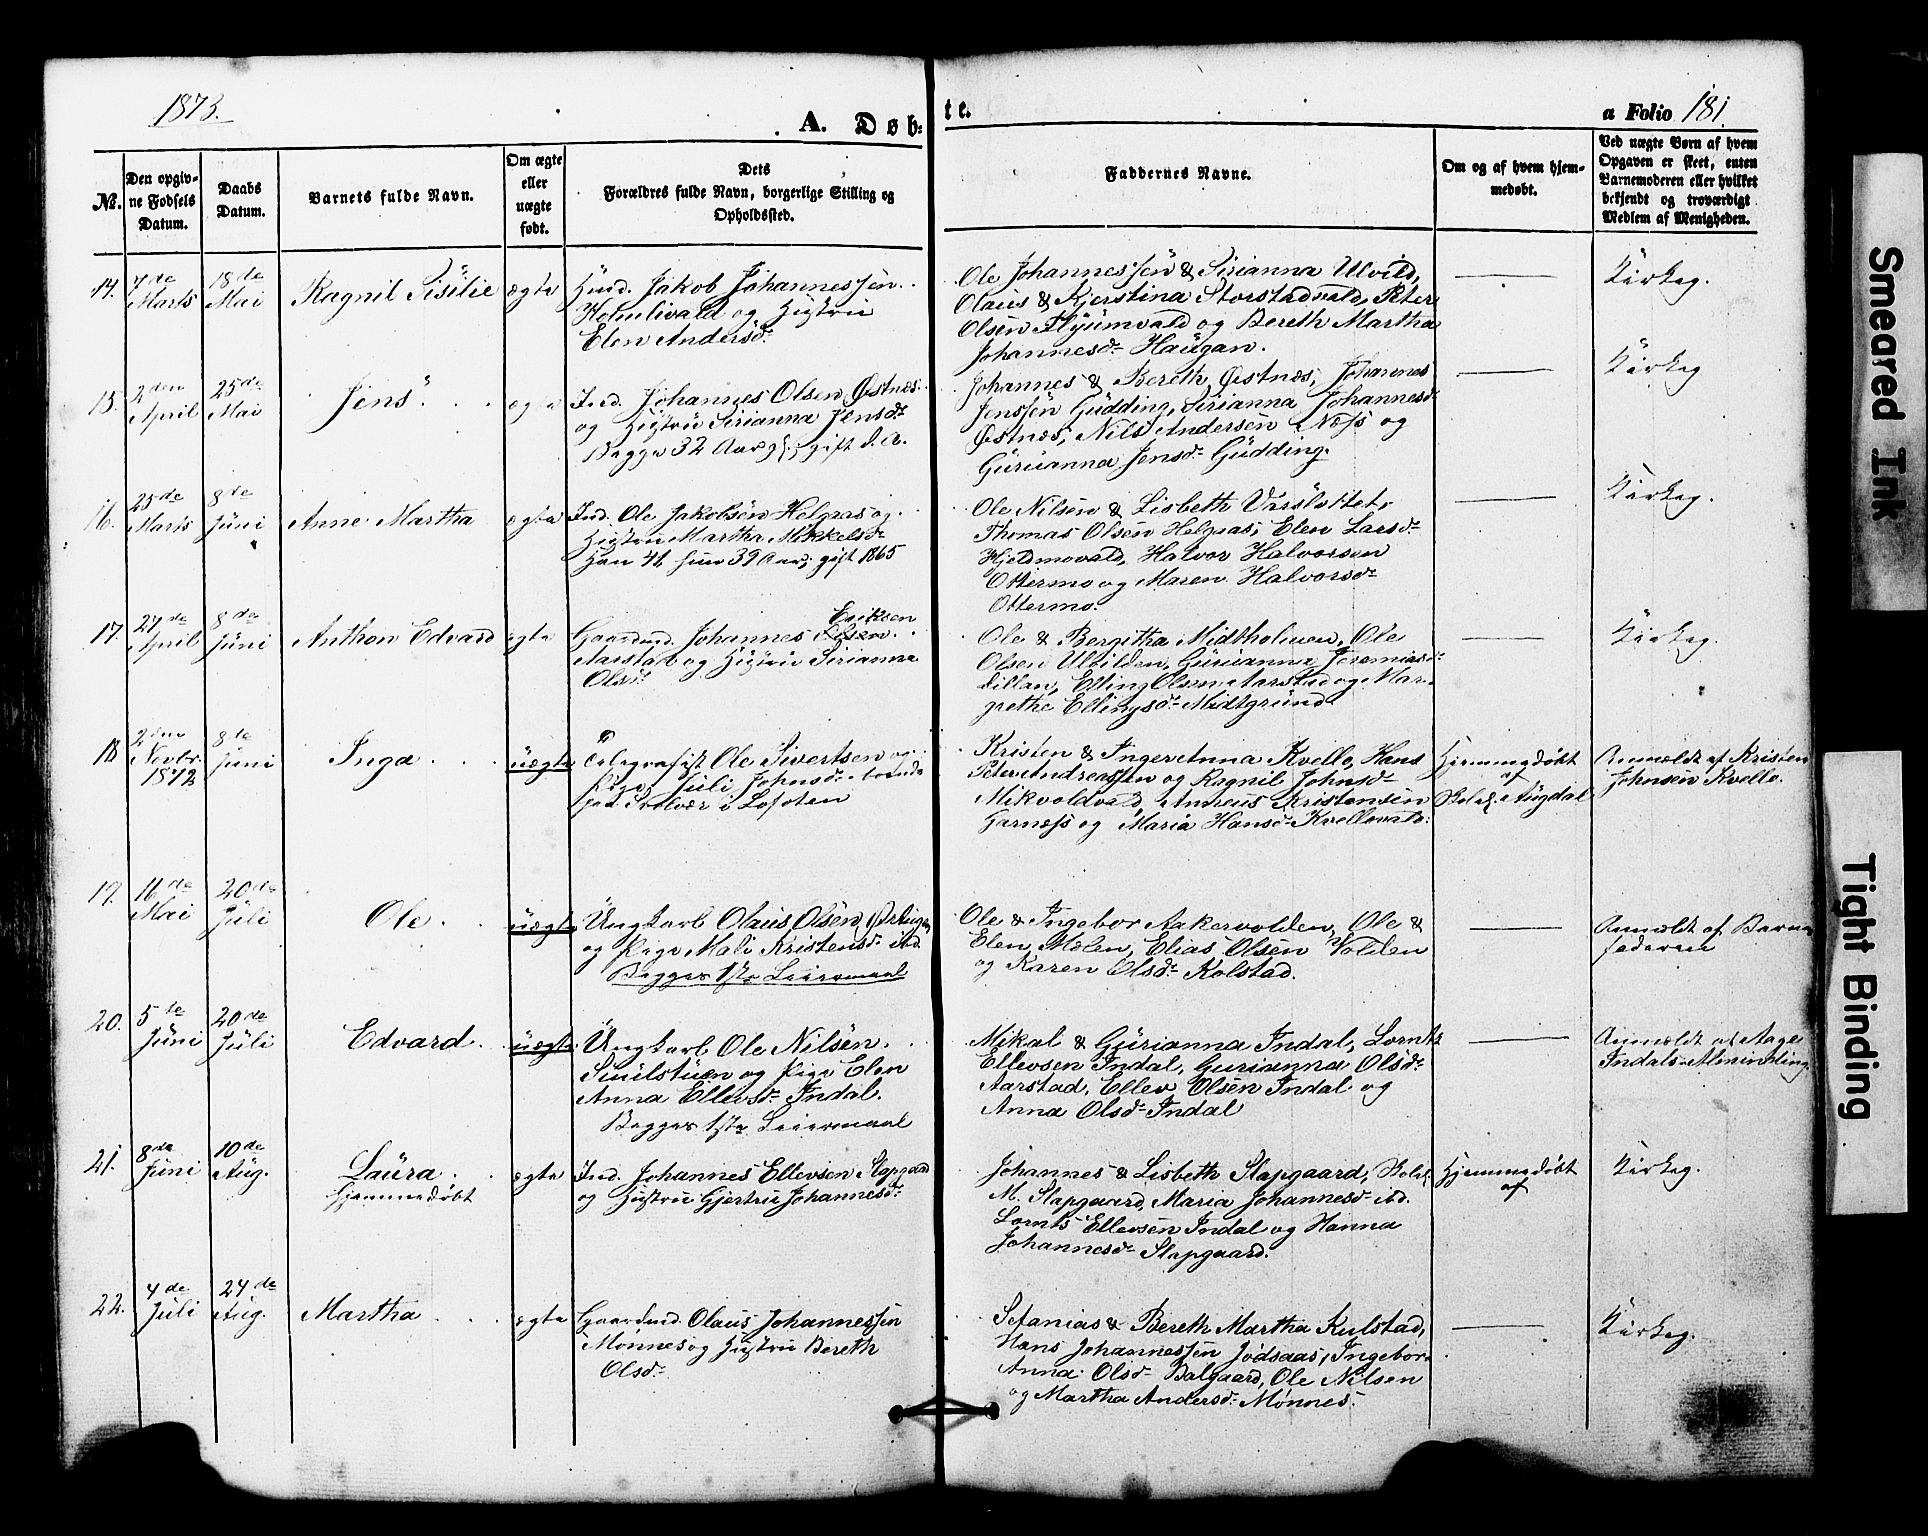 1873.
A. Døb-
te.
a Folio 181.
No.
Den opgiv-
ne Fødsels
Datum.
Daabs
Datum.
Barnets fulde Navn.
Om ægte
eller
uægte
født.
Dets
Forældres fulde Navn, borgerlige Stilling og
Opholdssted.
Faddernes Navne.
Om og af hvem hjem-
medøbt.
Ved uægte Børn af hvem
Opgaven er skeet, enten
Barnemoderen eller hvilket
bekjendt og troværdigt
Medlem af Menigheden.
14.
7de
Marts
18de
Mai
Ragnil Sisilie
ægte
Jakob Johannessen
og Hustru
Elen Andersd.
Ole Johannessen & Sirianna Ulvild,
Olaus & Kjerstina Storstadvald, Peter
Olsen og Bereth Martha
Johannesd. Haugan.
Kirkeg.
15.
2den
April
25de
Mai
Jens
ægte
Ind. Johannes Olsen Østnæs
og Hustru Sirianna Jensd.
Begge 32 Aar gl., gift d. A.
Johannes & Bereth Østnæs, Johannes
Jenssen Gudding, Sirianna Johannesd.
Østnæs, Nils Andersen Næss og
Gurianna Jensd. Gudding.
Kirkeg
16.
25de
Marts
8de
Juni
Anne Martha
ægte
Ind. Ole Jakobsen Helgaas og
Hustru Martha Mikkelsd.
Han 41 hun 39 Aar, gift 1865
Ole Nilsen & Lisbeth
Thomas Olsen Helgaas, Elen Larsd.
Hjeldmovald, Halvor Halvorsen
Ottermo og Maren Halvorsd.
Ottermo.
Kirkeg.
17.
27de
April
8de
Juni
Anthon Edvard
ægte
Eriksen
Gaardmd. Johannes Olsen
Aarstad og Hustru Sirianna
Olsd.
Ole & Bergitha Midtholmen, Ole
Olsen Ulvilden, Gurianna Jeremiasd.
Lillan, Elling Olsen Aarstad og Mar-
grethe Ellingsd. Midtgrund
Kirkeg.
18
2den
Novbr.
1872
8de
Juni
Inga
uægte
Telegrafist Ole Sivertsen og
Pige Juli Johnsd. boende
ved Svolvær i Lofoten
Kristen & Inger Anna Kvello, Hans
Peter Andreassen og Ragnil Johnsd.
Mikvoldvald, Andreas Kristensen
Garnæss og Maria Hansd. Kvellovald.
Hjemmedøbt
af
Skolel. Augdal
Anmældt af Kristen
Johnsen Kvello.
19.
16de
Mai
20de
Juli
Ole
uægte
Ungkarl Olaus Olsen
og Pige Mali Kristensd. ibd.
Begges 1ste Leiermaal
Ole & Ingebor Aakervolden, Ole &
Elen Mælen, Elias Olsen Volden
og Karen Olsd. Kolstad.
Anmældt af Barne-
faderen
20.
5te
Juni
20de
Juli
Edvard
uægte
Ungkarl Ole Nilsen
og Pige Elen
Anna Ellevsd. Indal.
Begges 1ste Leiermaal
Mikal & Gurianna Indal, Lornts
Ellevsen Indal, Gurianna Olsd.
Aarstad, Ellev Olsen Indal og
Anna Olsd. Indal
Anmældt af Aage
Indals Alminding.
21.
8de
Juni
10de
Aug.
Laura
Hjemmedøbt
ægte
Ind. Johannes Ellevsen Slapgaard
og Hustru Gjertru Johannesd.
Johannes & Lisbeth Slapgaard, Skolel.
M. Slapgaard, Maria Johannesd. ibd.
Lornts Ellevsen Indal og Hanna
Johannesd. Slapgaard.
Hjemmedøbt
af
Kirkeg.
22.
4de
Juli
24de
Aug.
Martha
ægte
Gaardmd. Olaus Johannessen
Mønnes og Hustru Bereth
Olsd.
Sefanias & Bereth Martha Kulstad,
Hans Johannessen Jødsaas, Ingebor
Anna Olsd. Balgaard, Ole Nilsen
og Martha Andersd. Mønnes.
Kirkeg.
Smeared Ink
Tight Binding